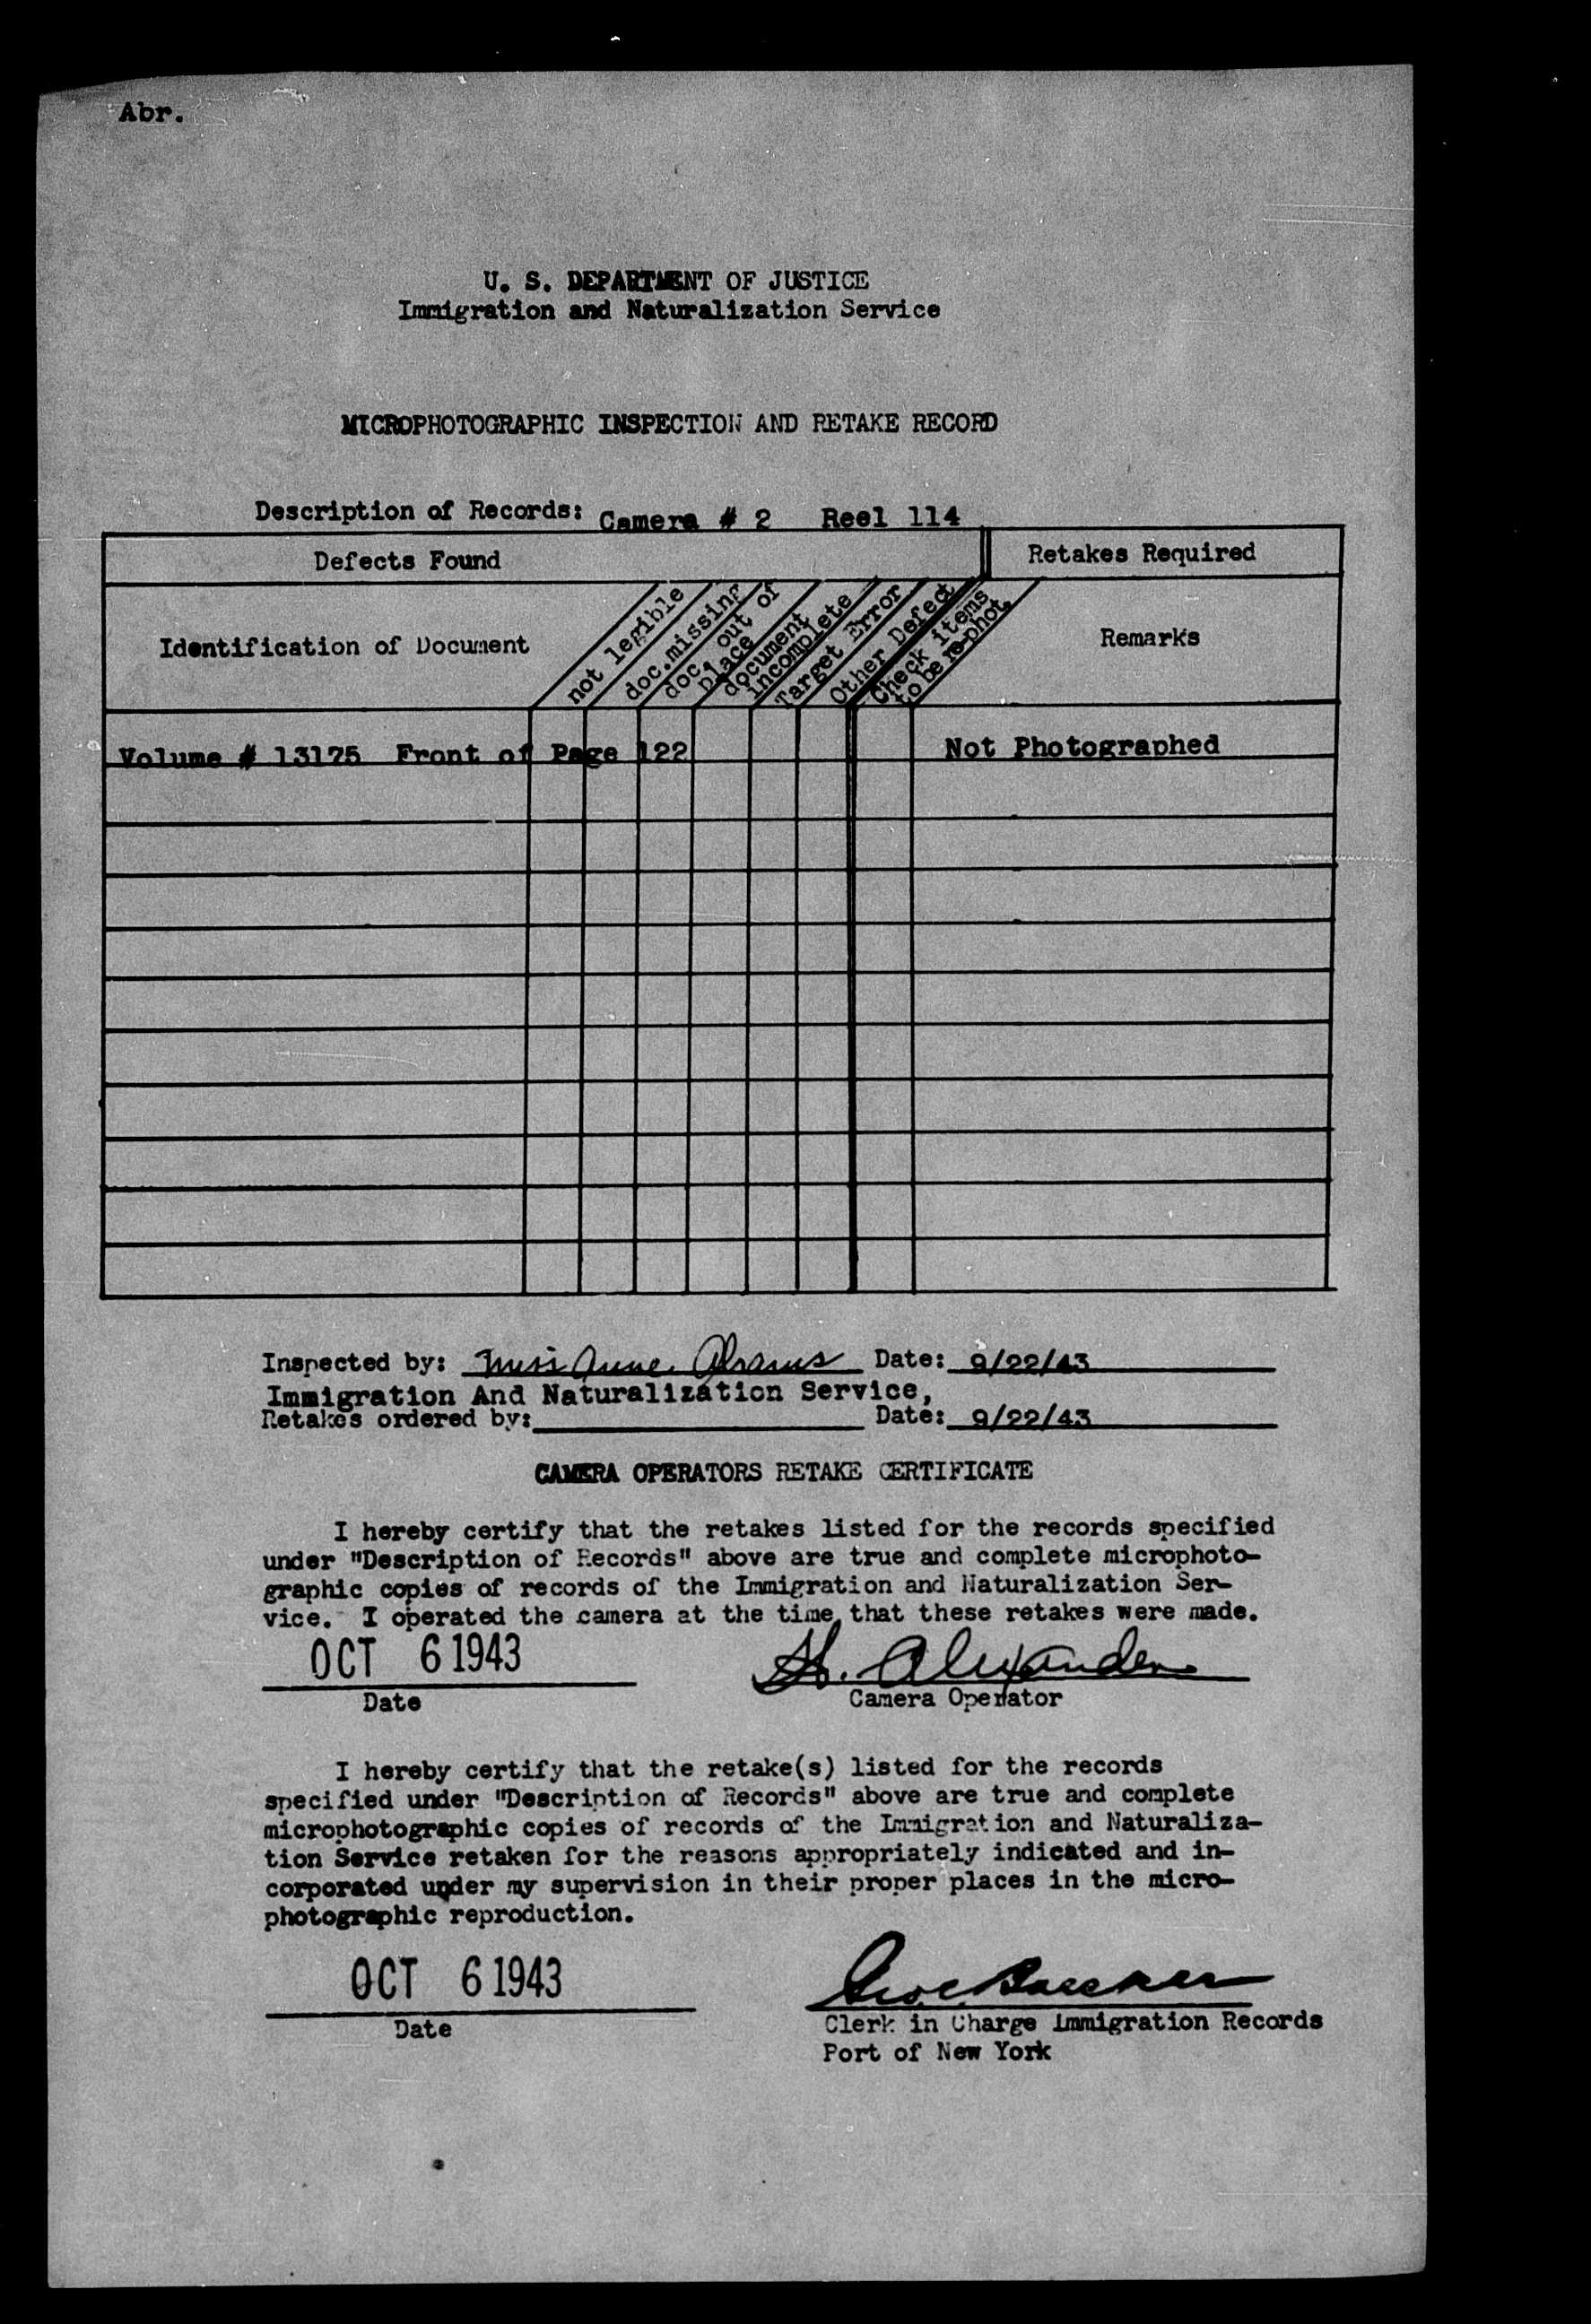 Abr.
U. S. DEPARTMENT OF JUSTICE
Immigration and Naturalization Service
MICROPHOTOGRAPHIC INSPECTION AND RETAKE RECORD
Description of Records: Camera # 2 Reel 114
Defects Found
Retakes Required
Identification of Document
not legible
doc.missing
doc. out of
place
document
incomplete
Target Error
Other Defect
Check items
to be re-phot.
Remarks
Volume # 13175 Front of Page 122
Not Photographed
Inspected by: Miss Anne Abrams Date: 9/22/43
Immigration And Naturalization Service,
Retakes ordered by: Date: 9/22/43
CAMERA OPERATORS RETAKE CERTIFICATE
I hereby certify that the retakes listed for the records specified
under "Description of Records" above are true and complete microphoto-
graphic copies of records of the Immigration and Naturalization Ser-
vice. I operated the camera at the time that these retakes were made.
OCT 6 1943
Date
H. Alexander
Camera Operator
I hereby certify that the retake(s) listed for the records
specified under "Description of Records" above are true and complete
microphotographic copies of records of the Immigration and Naturaliza-
tion Service retaken for the reasons appropriately indicated and in-
corporated under my supervision in their proper places in the micro-
photographic reproduction.
OCT 6 1943
Date
Clerk in Charge Immigration Records
Port of New York